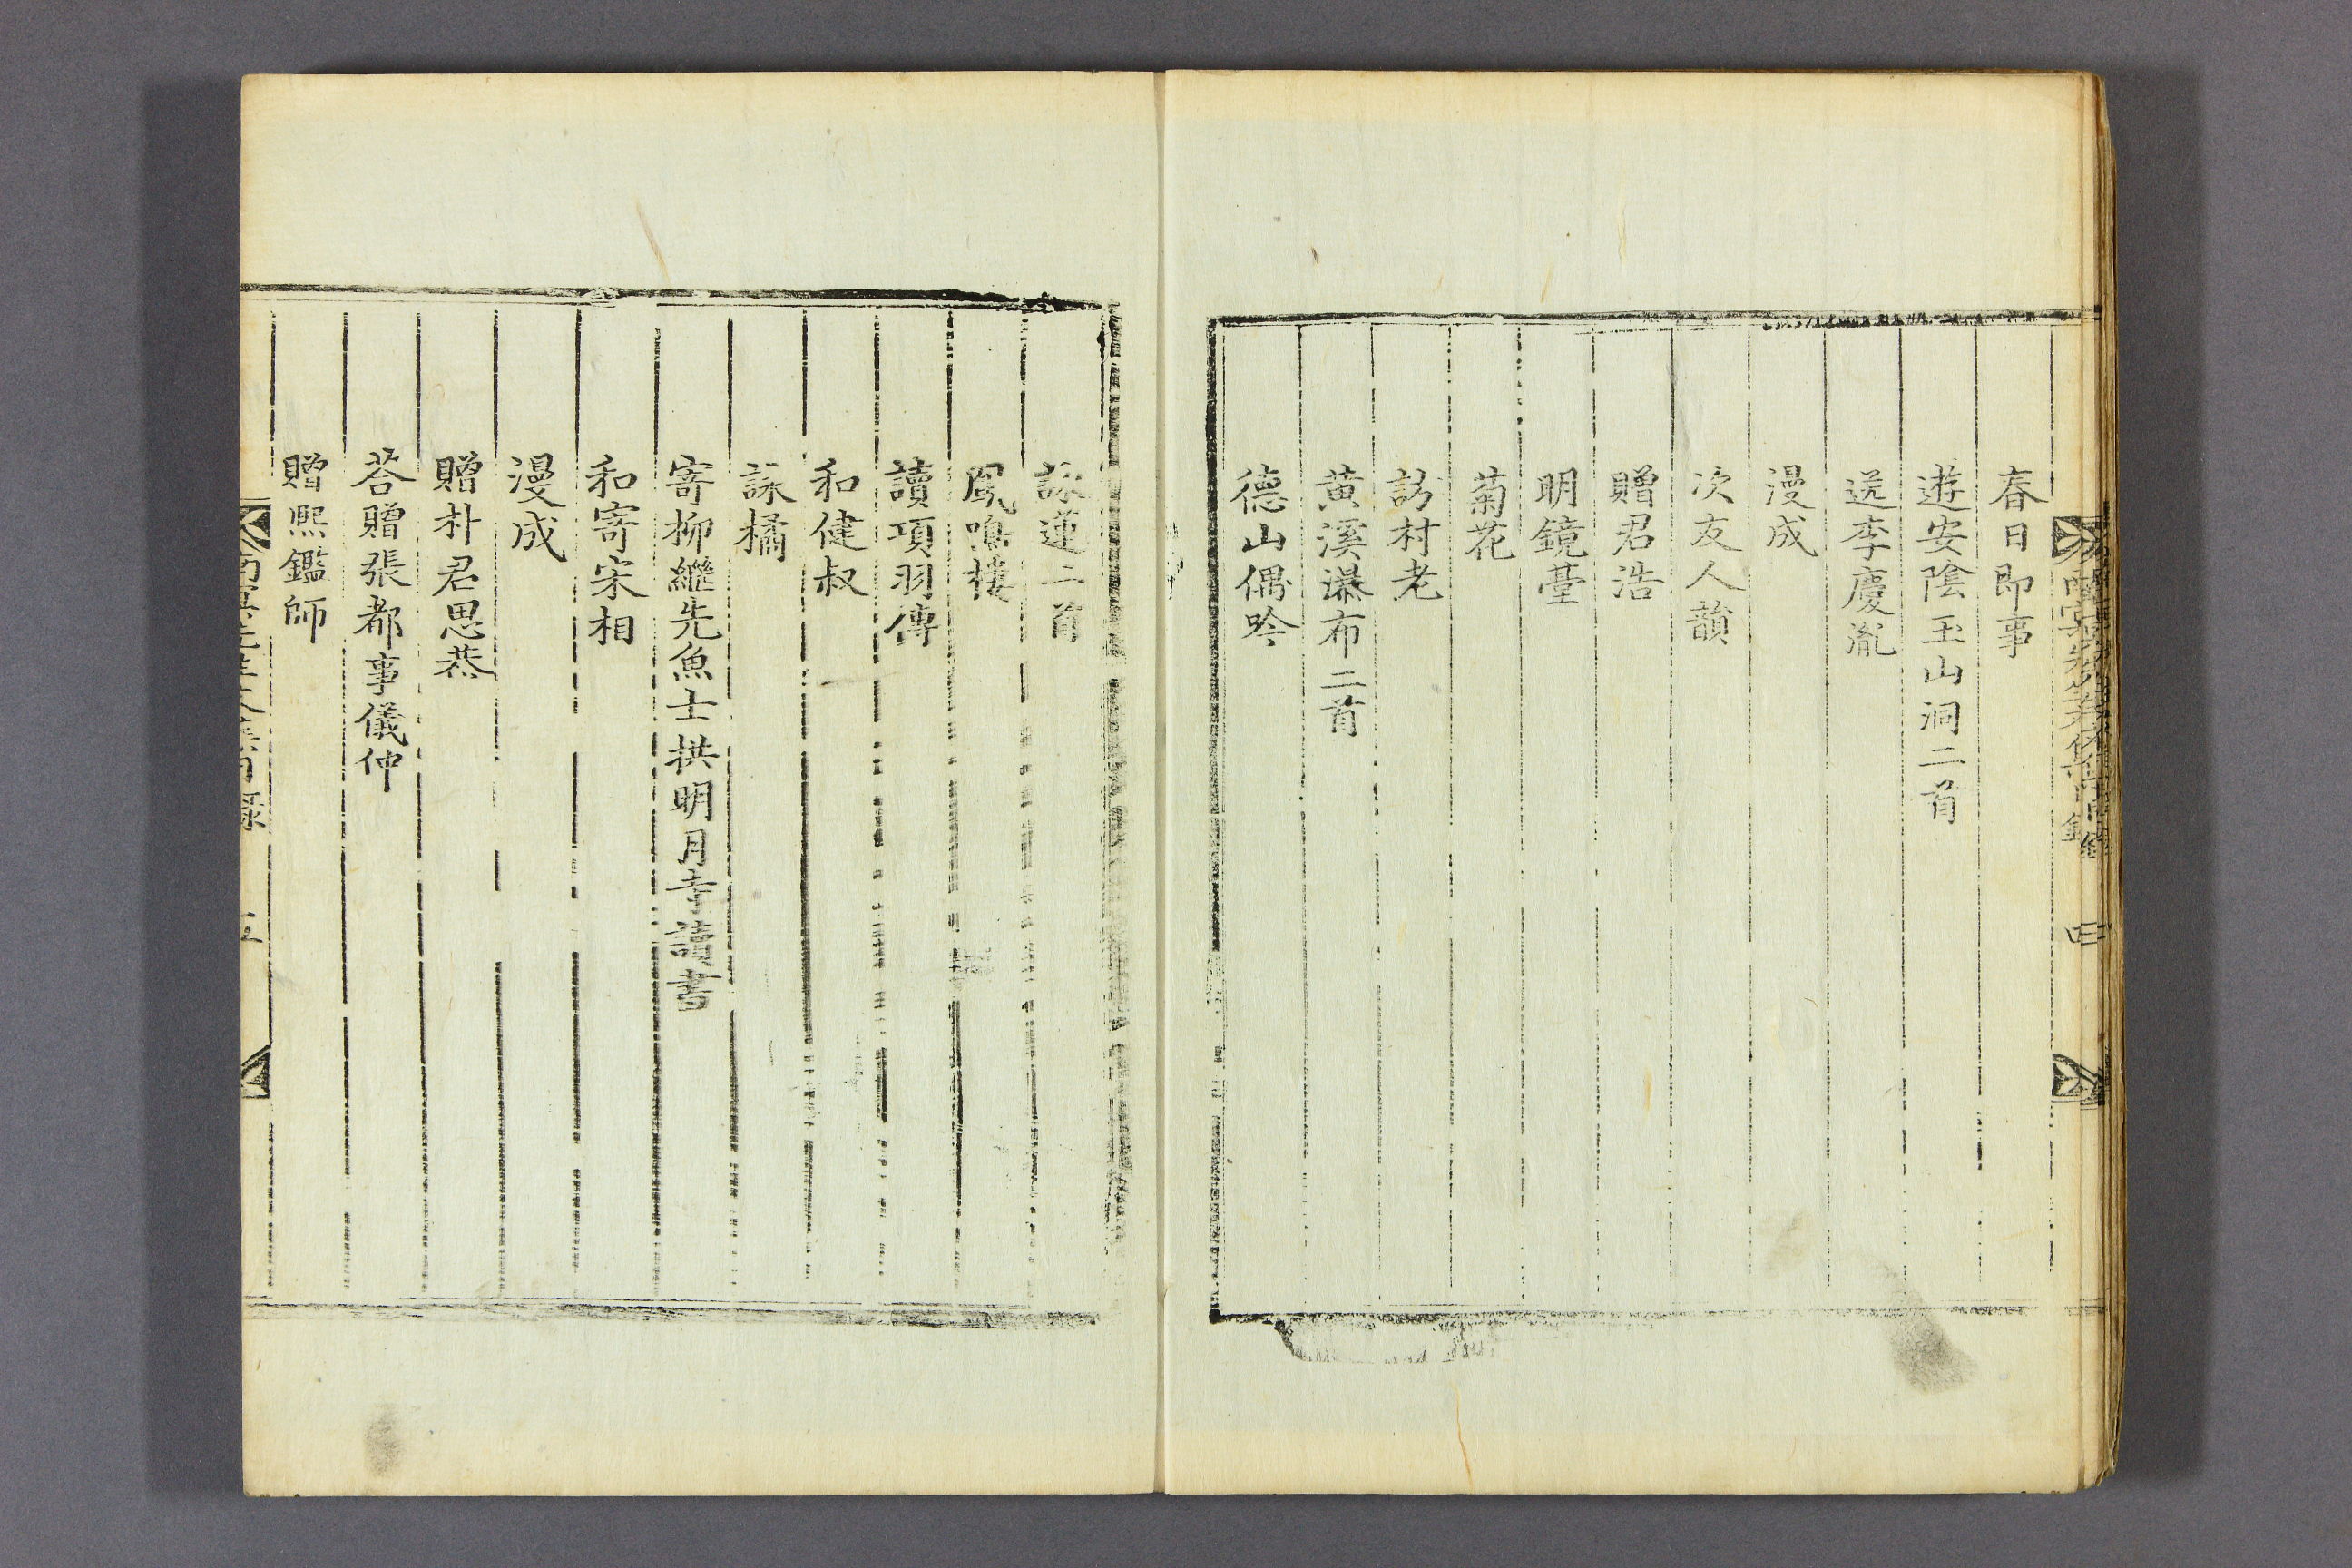 春日即事
遊安陰玉山洞二首
送李慶胤
漫成
次友人韻
贈君浩
明鏡臺
菊花
訪村老
黃溪瀑布二首
德山偶吟
四
詠蓮二首
鳳鳴樓
讀項羽傳
和健叔
詠橘
寄柳繼先魚士拱明月寺讀書
和寄宋相
漫成
贈朴君思恭
荅贈張都事儀仲
贈熙鑑師